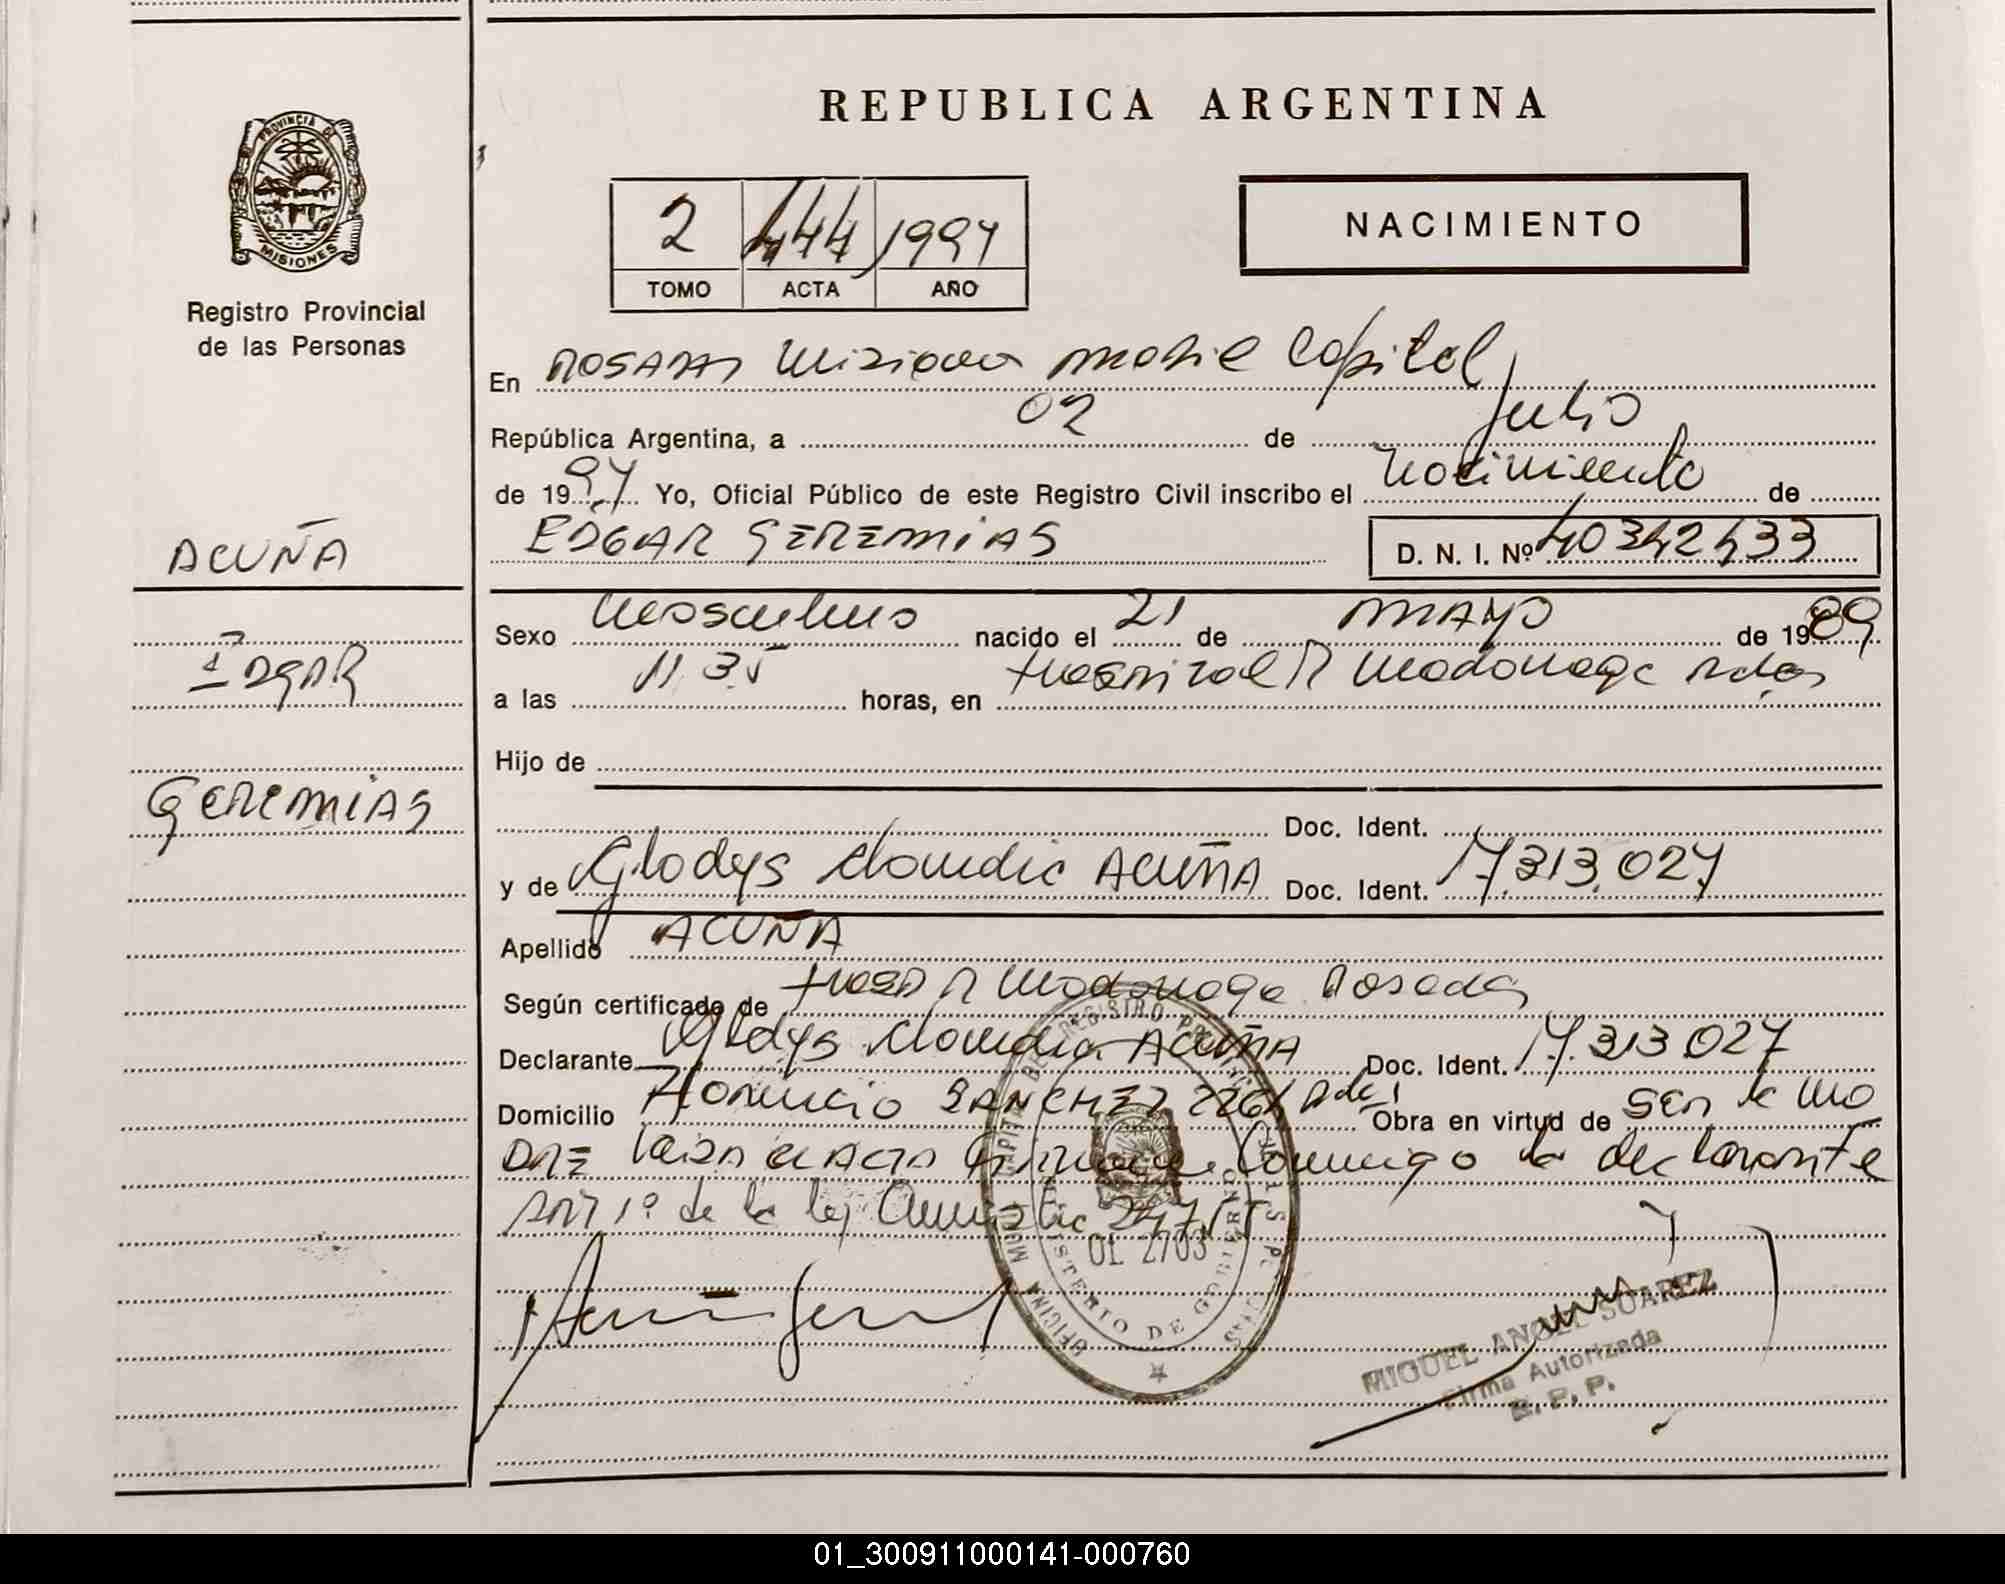 PROVINCIA DE
MISIONES
Registro Provincial
de las Personas
ACUÑA
EDGAR
GEREMIAS
REPUBLICA ARGENTINA
2 444 1997
TOMO ACTA AÑO
NACIMIENTO
En POSADAS Misiones Capital
República Argentina, a 02 de Julio
de 1997 Yo, Oficial Público de este Registro Civil inscribo el Nacimiento de
EDGAR GEREMIAS D. N. I. Nº 40342433
Sexo Masculino nacido el 21 de MAYO de 1989
a las 11.35 horas, en Hospital R Madariaga Pdas
Hijo de
Doc. Ident.
y de Gladys Claudia ACUÑA Doc. Ident. 17.313.027
Apellido ACUÑA
Según certificado de Hosp R Madariaga Posadas
Declarante Gladys Claudia ACUÑA Doc. Ident. 17.313.027
Domicilio Florencio SANCHEZ Pdas Obra en virtud de Ser la Ma
DRE Leida el ACTA Firma Conmigo la declarante
ART 1º de la ley
OL 2703
MINISTERIO DE GOBIERNO
MIGUEL ANGEL SUAREZ
Firma Autorizada
R. P. P.
01_300911000141-000760